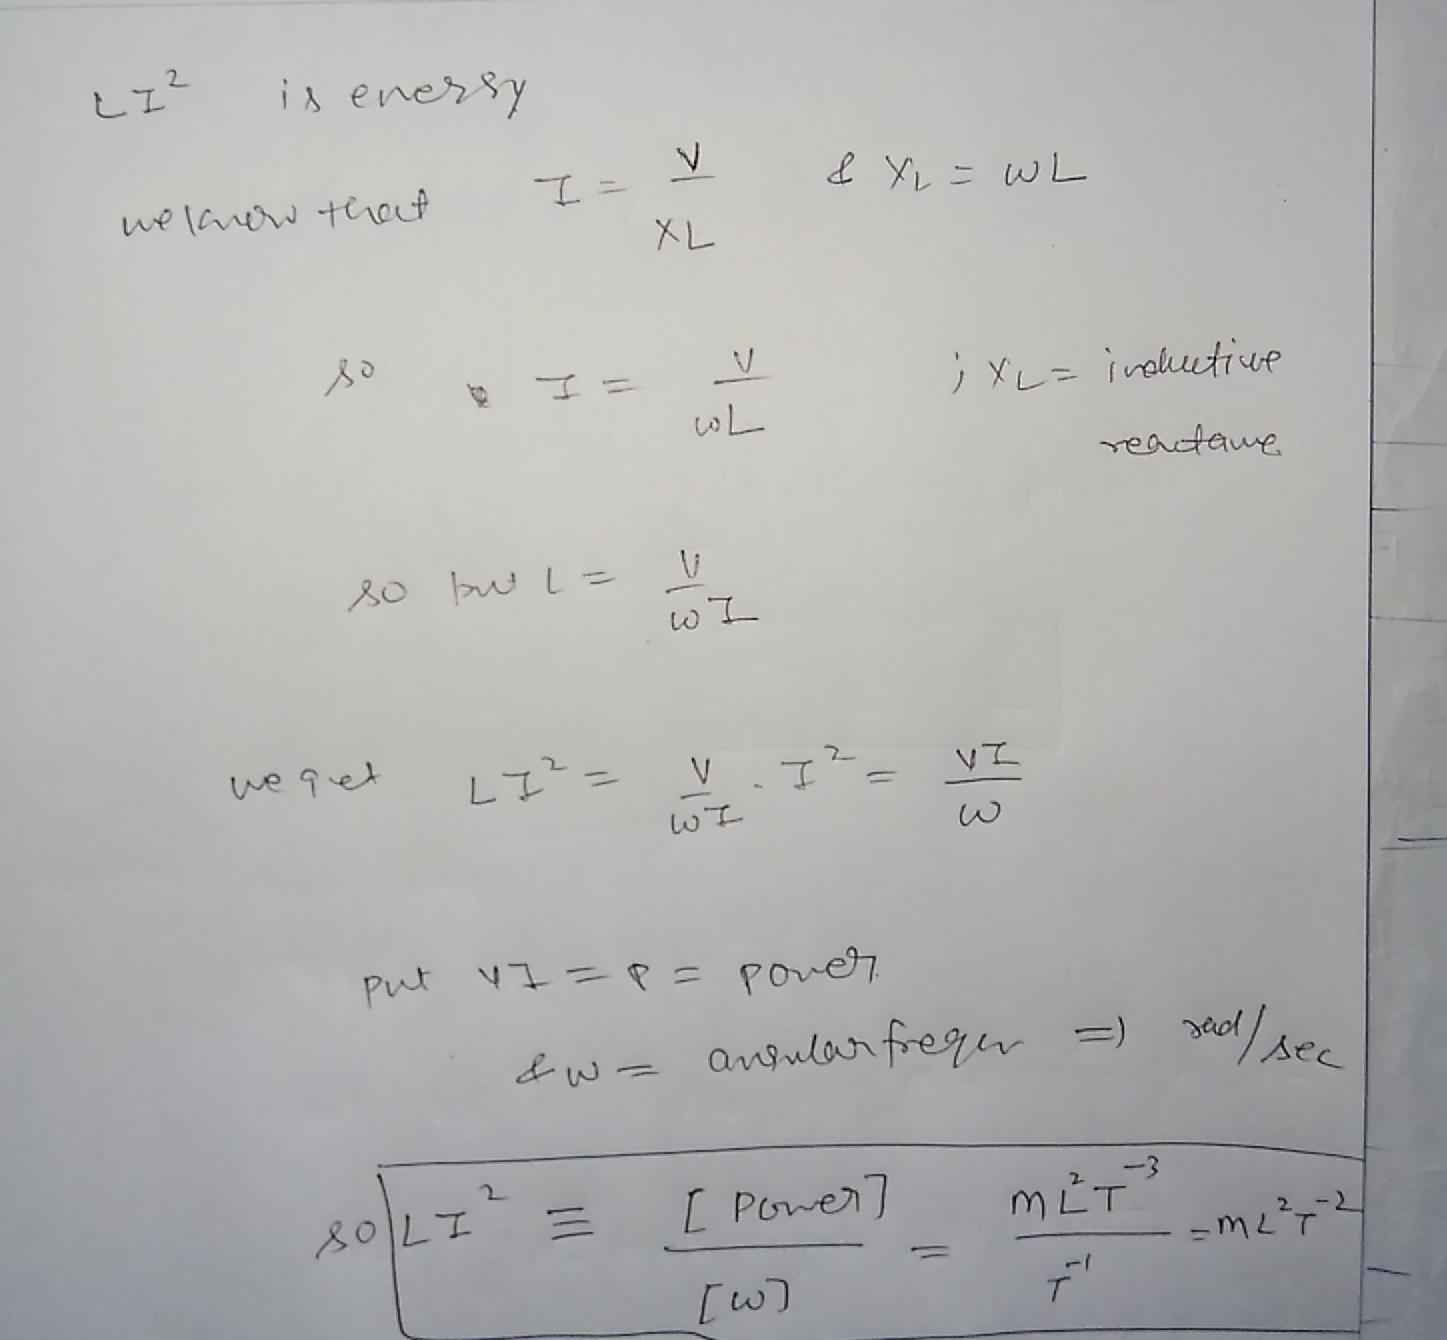 LI² is energy
we know that I = V/XL & XL = ωL
so I = V/ωL ; XL = inductive
reactance
so but L = V/ωI
we get LI² = V/ωI . I² = VI/ω
put VI = P = power
& ω = angular frequ => rad/sec
so LI² ≡ [Power]/[ω] = ML²T⁻³/T⁻¹ = ML²T⁻²